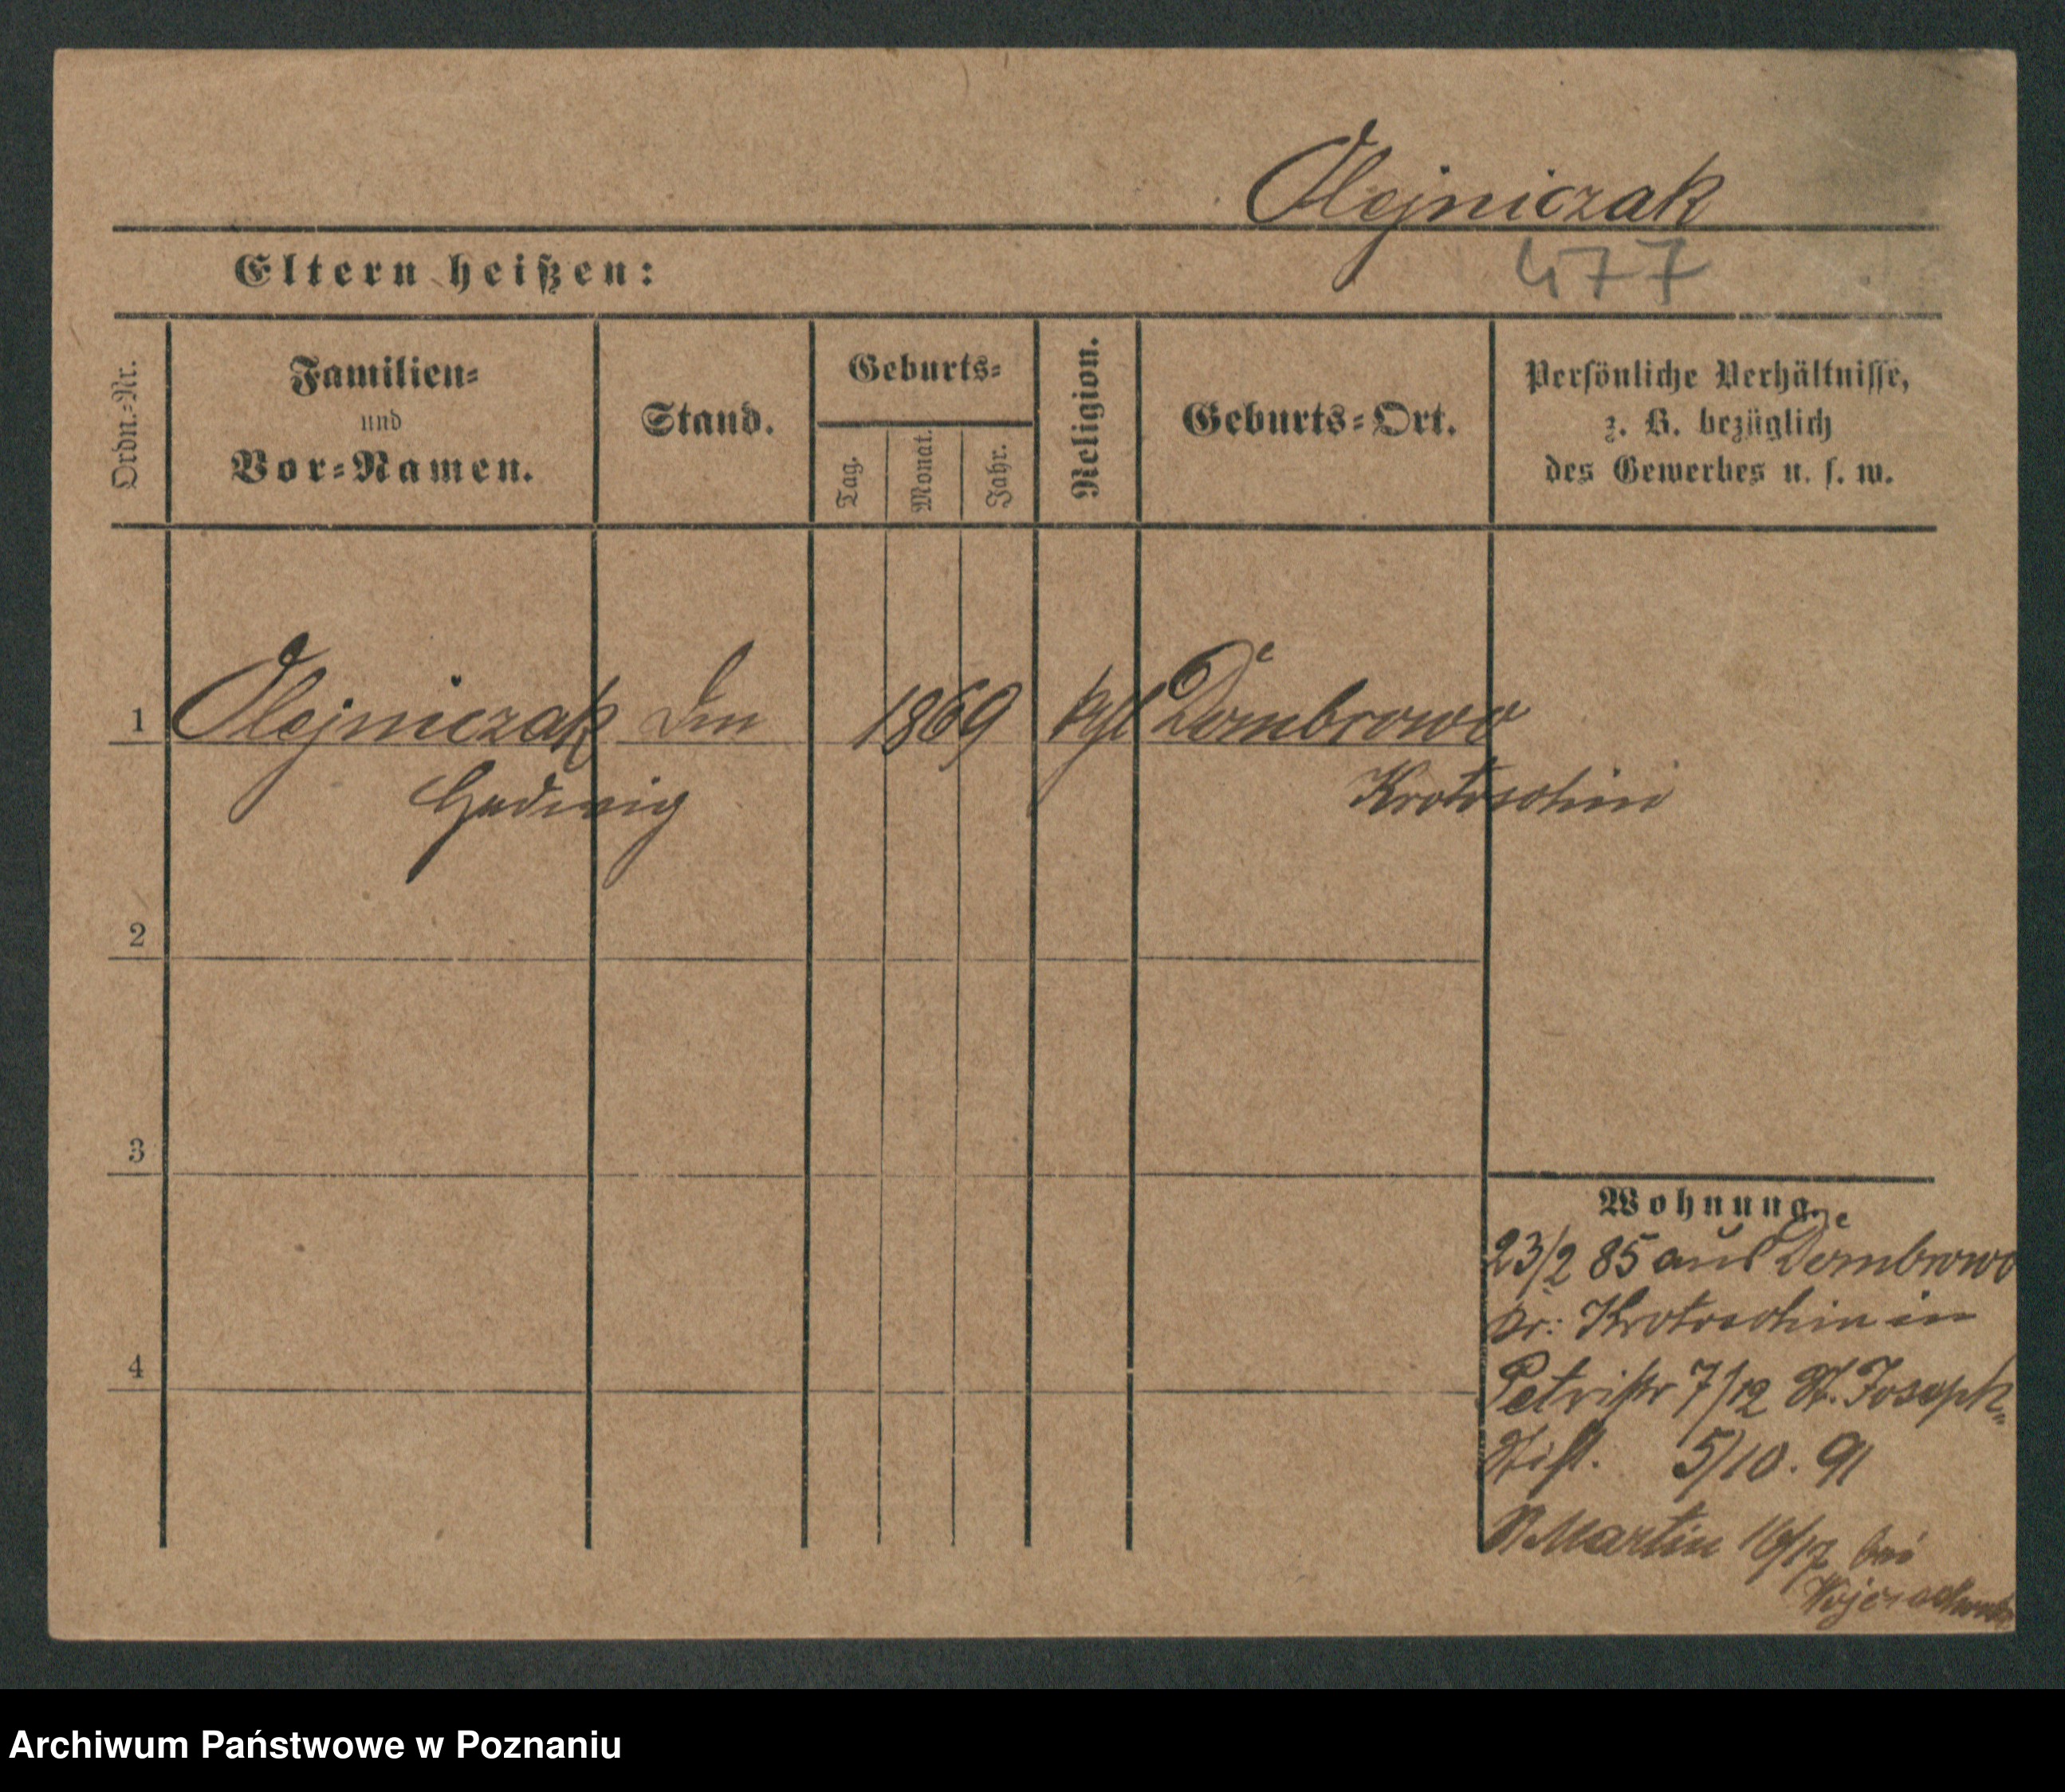 Olejniczak
477
Eltern heißen:
Ordn.=Nr.
Familien=
und
Vor=Namen.
Stand.
Geburts=
Tag.
Monat.
Jahr.
Religion.
Geburts=Ort.
Persönliche Verhältnisse,
z. B. bezüglich
des Gewerbes u. s. w.
1 Olejniczak 1869 Dombrowo
Hedwig Krotoschin
2
3
4
Wohnung.
23/2 85 aus Dombrowo
Kr: Krotoschin in
Petristr 7/12 St. Joseph=
Stift. 5/10. 91
St Martin 16/17 bei
Archiwum Państwowe w Poznaniu